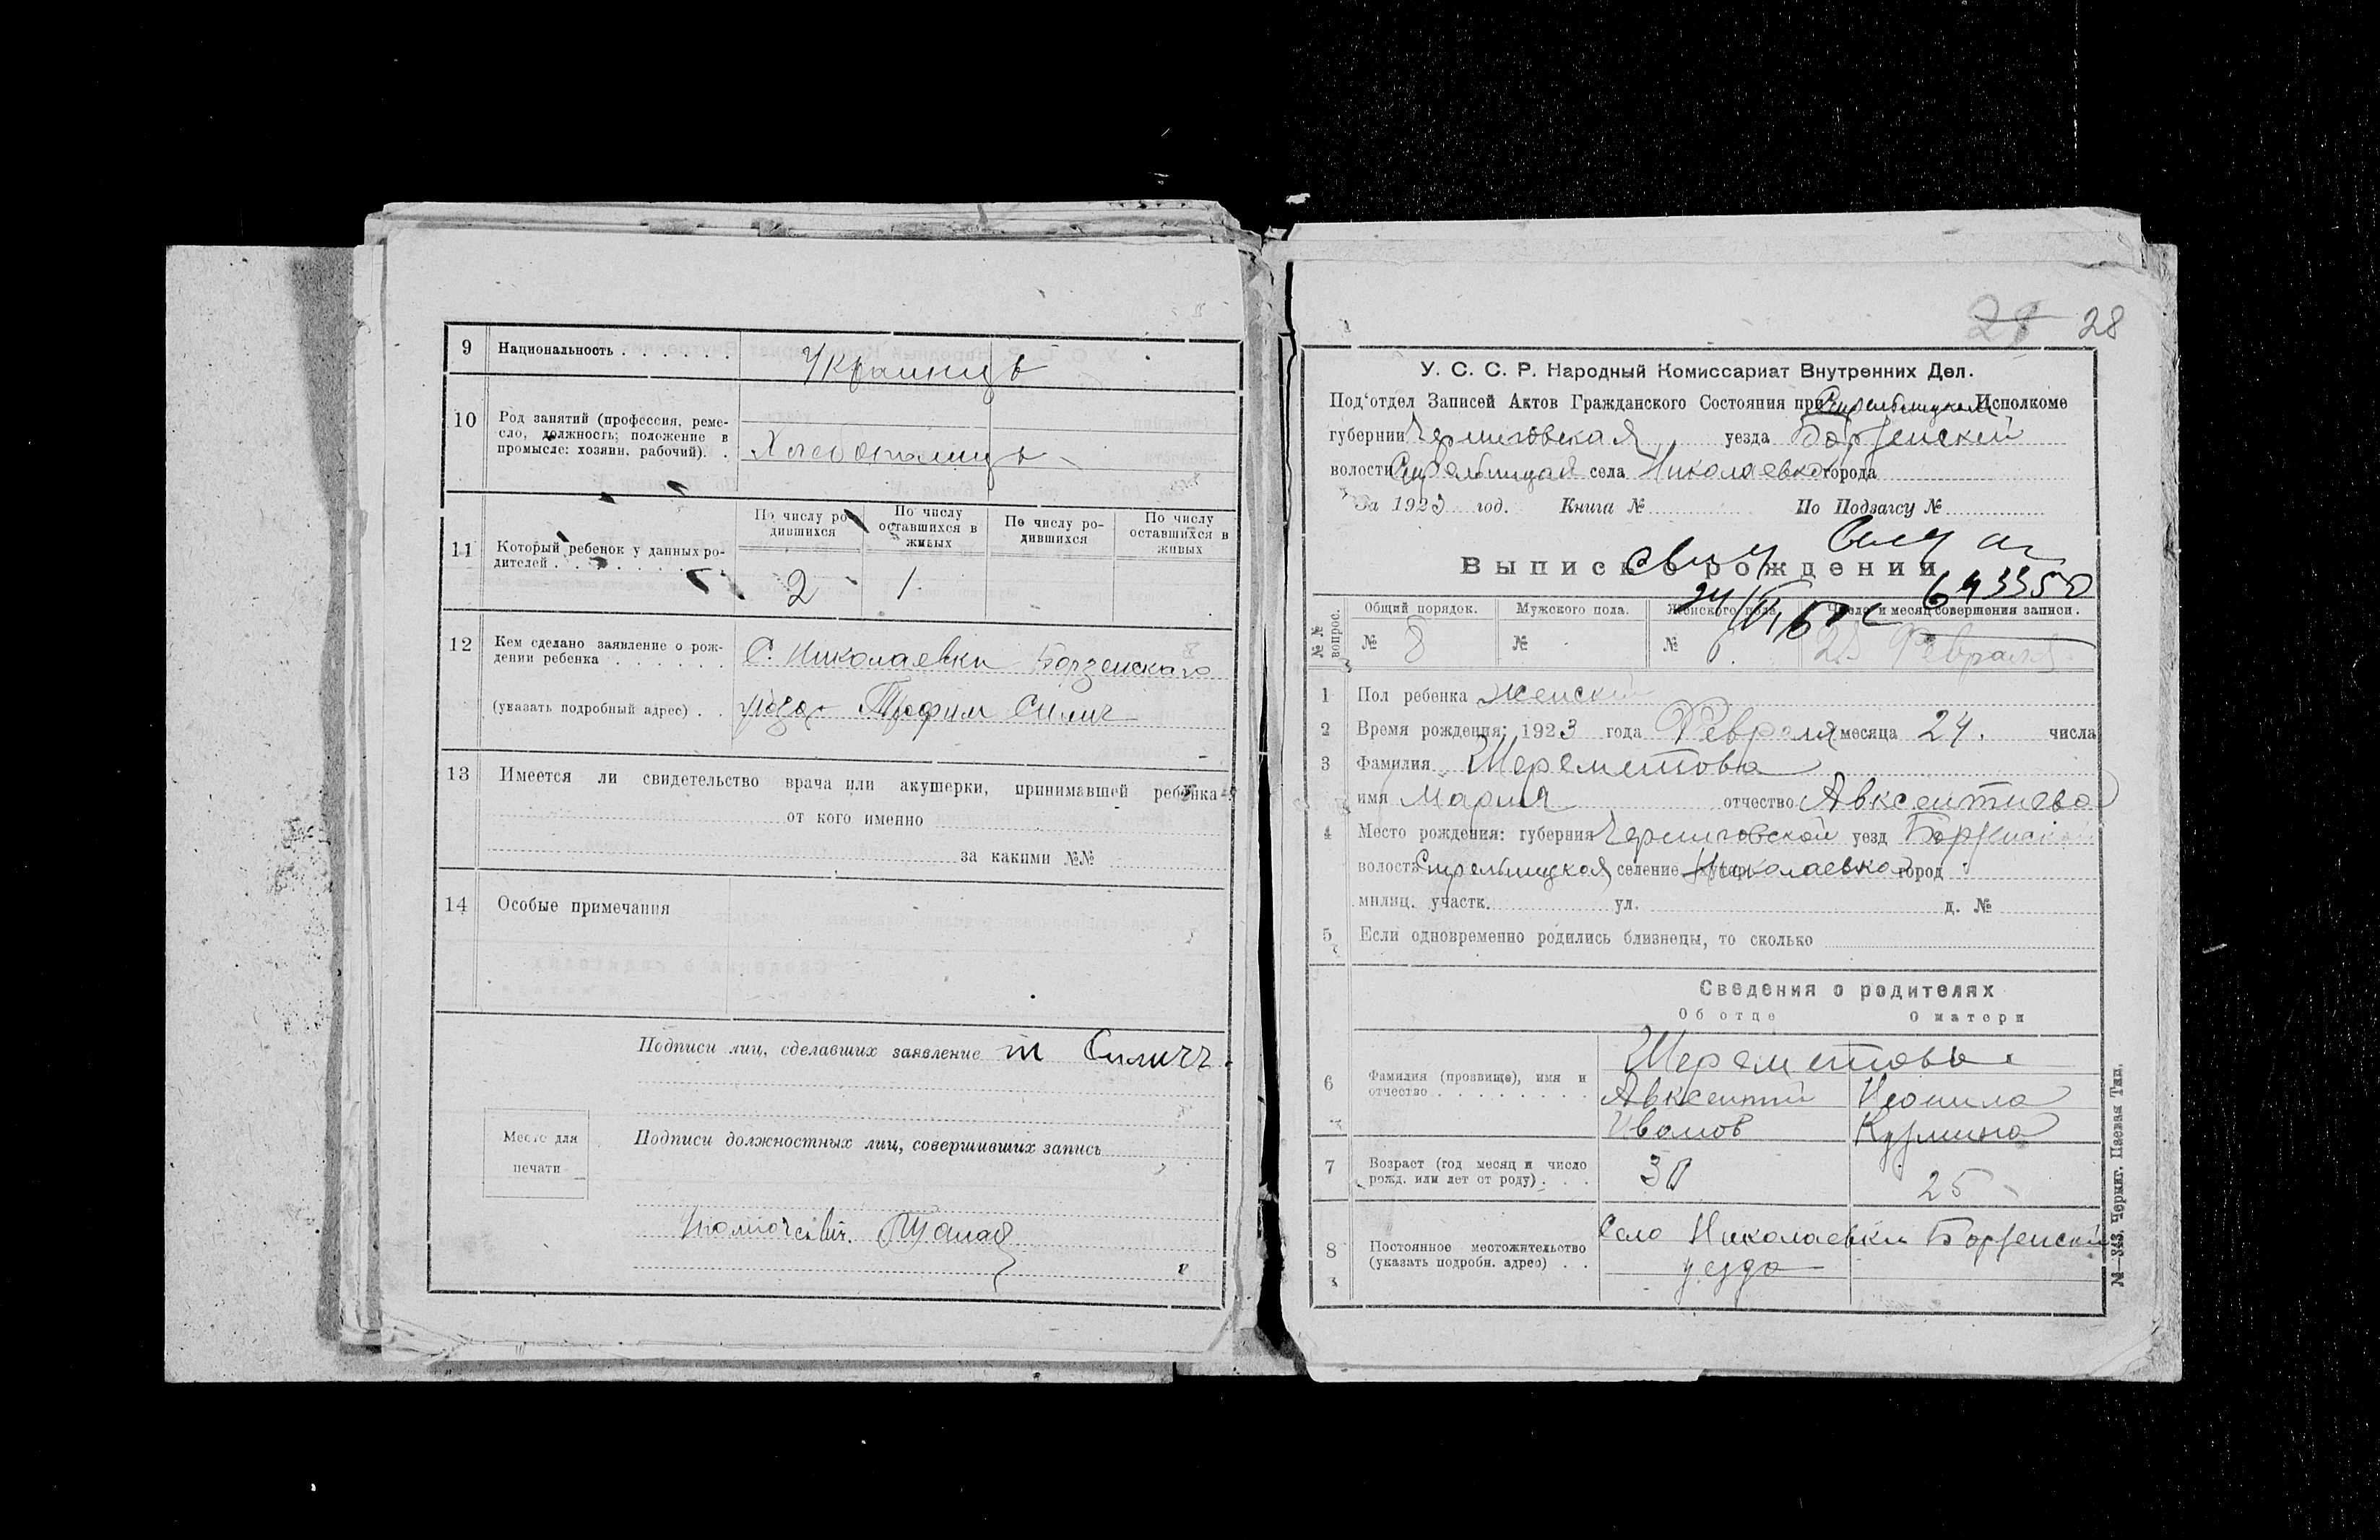 9 Национальность . . . . . . Украинцъ
10 Род занятий (профессия, реме-
сло, должность; положение в
промысле: хозяин, рабочий). . Хлебопашецъ
По числу ро-
дившихся
По числу
оставшихся в
живых
По числу ро-
дившихся
По числу
оставшихся в
живых
11 Который ребенок у данных ро-
дителей . . . . . . . . 2 1
12 Кем сделано заявление о рож-
дении ребенка . . . . . . С. Николаевки Борзенскаго
(указать подробный адрес) . . уезда Трофим Силич
13 Имеется ли свидетельство врача или акушерки, принимавшей ребенка
от кого именно
за какими №№
14 Особые примечания
Подписи лиц, сделавших заявление т Силичъ.
Место для
печати
Подписи должностных лиц, совершивших запись
28
У. С. С. Р. Народный Комиссариат Внутренних Дел.
Под‘отдел Записей Актов Гражданского Состояния при Исполкоме
губернии Черниговская уезда Борзенский
волости села Николаевка города
За 1923 год. Книга № По Подзагсу №
Выпись о рождении
643350
№№ вопрос.
Общий порядок. Мужского пола. Женского пола. Число и месяц совершения записи.
№ 8 № № 25 Февраля
1 Пол ребенка женский
2 Время рождения: 1923 года Февраля месяца 24. числа
3 Фамилия Шереметова
имя Мария отчество Авксентиева
4 Место рождения: губерния Черниговской уезд Борзенской
волость Стрельницкая селение Николаевка город
милиц. участк. ул. д. №
5 Если одновременно родились близнецы, то сколько
Сведения о родителях
Об отце О матери
Шереметовы
6 Фамилия (прозвище), имя и
отчество . . . . . . . .
Авксентий Неонила
Иванов Кузмина
7 Возраст (год месяц и число
рожд. или лет от роду) . . . 30 25
8 Постоянное местожительство
(указать подробн. адрес) . .
Село Николаевки Борзенский
уезда
№—343. Черниг. Паевая Тип.